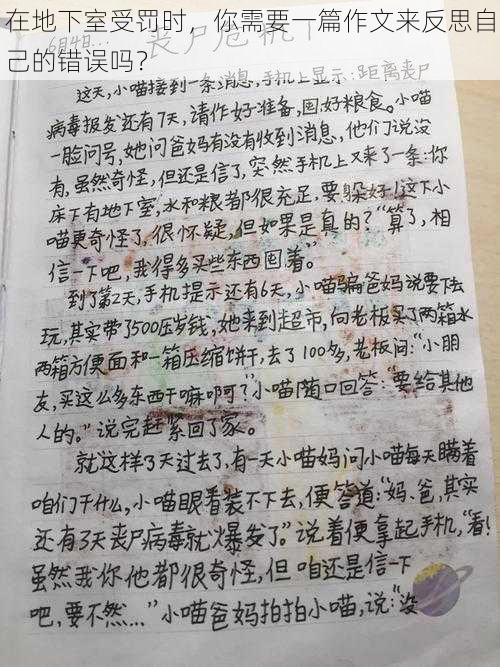 在地下室受罚时，你需要一篇作文来反思自
己的错误吗？
丧尸危机下
这天，小喵接到一条消息，手机上显示：距离丧尸
病毒报发还有7天，请作好准备，囤好粮食。小喵
一脸问号，她问爸妈有没有收到消息，他们说没
有，虽然奇怪，但还是信了，突然手机上又来了一条：你
床下有地下室，水和粮都很充足，要躲好！这下小
喵更奇怪了，很怀疑，但如果是真的？“算了，相
信一下吧，我得多买些东西囤着。”
到了第2天，手机提示还有6天，小喵骗爸妈说要下去
玩，其实带了500压岁钱，她来到超市，向老板买了两箱水
两箱方便面和一箱压缩饼干，去了100多，老板问：“小朋
友，买这么多东西干嘛啊？”小喵随口回答：“要给其他
人的。”说完赶紧回了家。
就这样3天过去了，有一天小喵妈问小喵每天瞒着
咱们干什么，小喵眼看装不下去，便答道：“妈、爸，其实
还有3天丧尸病毒就爆发了。”说着便拿起手机，“看！
虽然我你他都很奇怪，但咱还是信一下
吧，要不然…”小喵爸妈拍拍小喵，说：“没